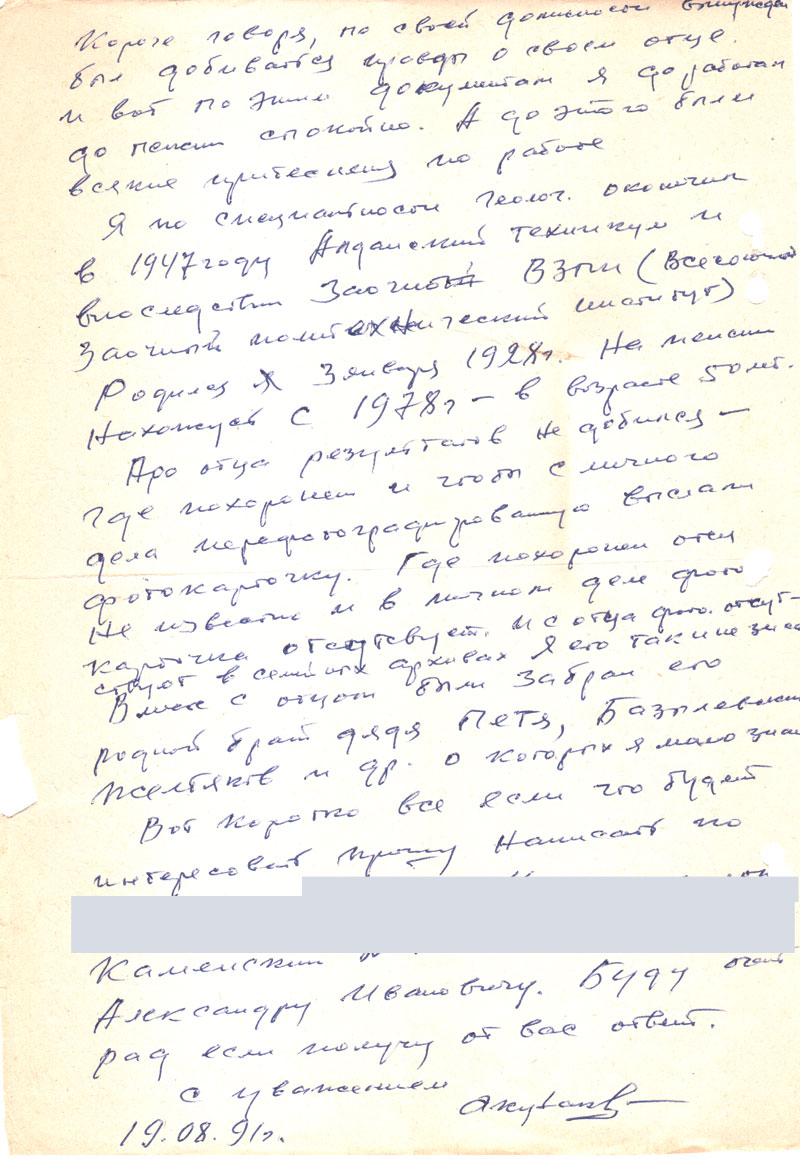 Короче говоря, по своей должности вынужден
был добиваться правды о своем отце.
и вот по этим документам я доработал
до пенсии спокойно. А до этого были
всякие притеснения по работе
Я по специальности геолог. окончил
в 1947 году Алданский техникум и
впоследствии Заочный ВЗПИ (Всесоюзный
Заочный политехнический институт)
Родился я 3 января 1928 г. На пенсии
Нахожусь с 1978 г – в возрасте 50 лет.
Про отца результатов не добился –
где похоронен и чтобы с личного
дела перефотографированную выслали
фотокарточку. Где похоронен отец
Не известно и в личном деле фото
карточка отсутствует. И с отца фото. отсут-
ствуют в семейных архивах Я его так и не знаю
Вместе с отцом был забран его
родной брат дядя Петя, Базылевский
Желтяков и др. о которых я мало знаю
Вот коротко все если что будет
интересовать прошу Написать по
Каменский
Александру Ивановичу. Буду очень
рад если получу от вас ответ.
с уважением
19.08.91г.